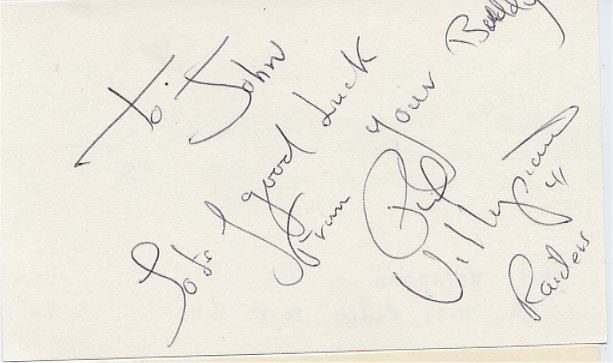 To: John
Lots of good Luck
From your Buddy
Phil
Villapiano
41
Raiders